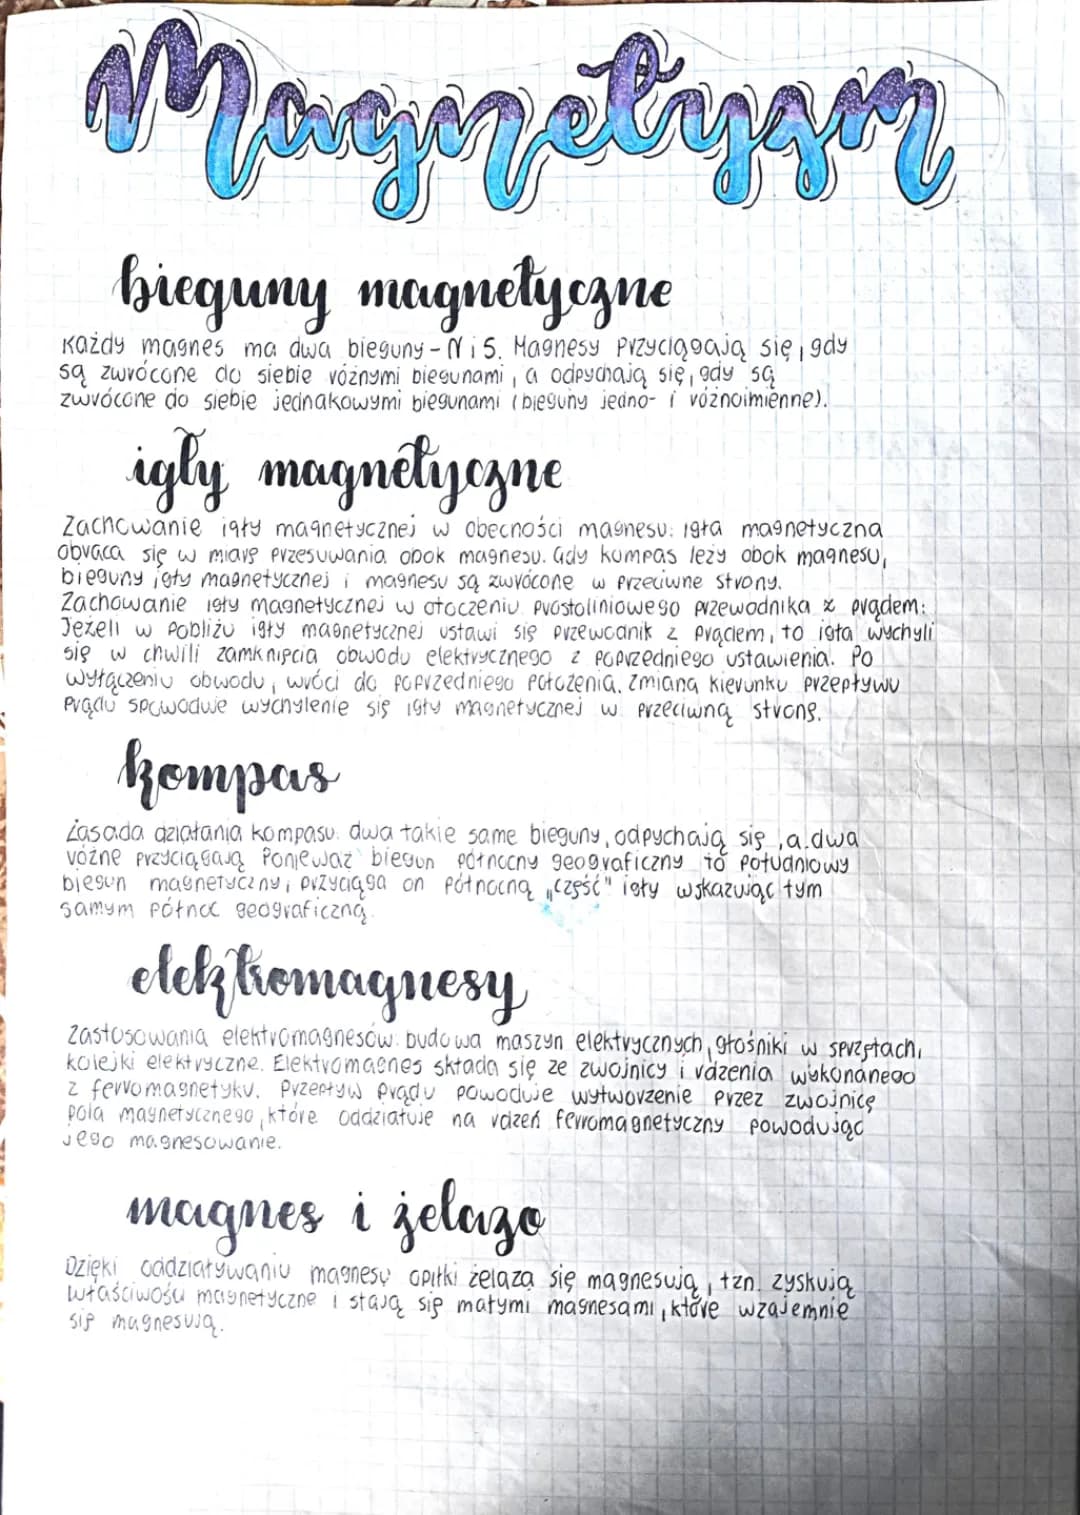 Magnetyzm
bieguny magnetyczne
Każdy magnes ma dwa bieguny - N i S. Magnesy przyciągają się, gdy
są zwrócone do siebie różnymi biegunami, a odpychają się, gdy są
zwrócone do siebie jednakowymi biegunami (bieguny jedno- i różnoimienne).
igły magnetyczne
Zachowanie igły magnetycznej w obecności magnesu: igła magnetyczna
obraca się w miarę przesuwania obok magnesu. Gdy kompas leży obok magnesu,
bieguny igły magnetycznej i magnesu są zwrócone w przeciwne strony.
Zachowanie igły magnetycznej w otoczeniu prostoliniowego przewodnika z prądem:
Jeżeli w pobliżu igły magnetycznej ustawi się przewodnik z prądem, to igła wychyli
się w chwili zamknięcia obwodu elektrycznego z poprzedniego ustawienia. Po
wyłączeniu obwodu, wróci do poprzedniego położenia. Zmiana kierunku przepływu
prądu spowoduje wychylenie się igły magnetycznej w przeciwną stronę.
kompas
Zasada działania kompasu: dwa takie same bieguny, odpychają się, a dwa
różne przyciągają. Ponieważ biegun północny geograficzny to południowy
biegun magnetyczny, przyciąga on północną „część" igły wskazując tym
samym północ geograficzną.
elektromagnesy
Zastosowania elektromagnesów: budowa maszyn elektrycznych, głośniki w sprzętach,
kolejki elektryczne. Elektromagnes składa się ze zwojnicy i rdzenia wykonanego
z ferromagnetyku. Przepływ prądu powoduje wytworzenie przez zwojnicę
pola magnetycznego, które oddziałuje na rdzeń ferromagnetyczny powodując
jego magnesowanie.
magnes i żelazo
Dzięki oddziaływaniu magnesu opiłki żelaza się magnesują, tzn. zyskują
właściwości magnetyczne i stają się małymi magnesami, które wzajemnie
się magnesują.